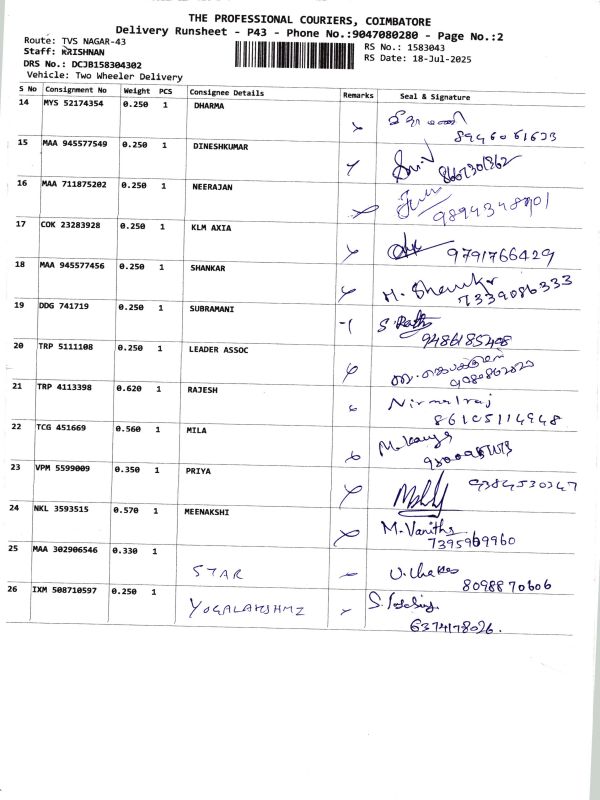 THE PROFESSIONAL COURIERS, COIMBATORE
Delivery Runsheet - P43 - Phone No.:9047080280 - Page No.:2
Route: TVS NAGAR-43
RS No.: 1583043
Staff: KRISHNAN
RS Date: 18-Jul-2025
DRS No.: DCJB158304302
Vehicle: Two Wheeler Delivery
S No Consignment No Weight PCS Consignee Details Remarks Seal & Signature
14 MYS 52174354 0.250 1 DHARMA
15 MAA 945577549 0.250 1 DINESHKUMAR
8667301362
16 MAA 711875202 0.250 1 NEERAJAN
17 COK 23283928 0.250 1 KLM AXIA
9791766429
18 MAA 945577456 0.250 1 SHANKAR
M. Shankar
7339086333
19 DDG 741719 0.250 1 SUBRAMANI
20 TRP 5111108 0.250 1 LEADER ASSOC
21 TRP 4113398 0.620 1 RAJESH
Nirmalraj
22 TCG 451669 0.560 1 MILA
23 VPM 5599009 0.350 1 PRIYA
9384530347
24 NKL 3593515 0.570 1 MEENAKSHI
M. Vanitha
7395969960
25 MAA 302906546 0.330 1 STAR
8098870606
26 IXM 508710597 0.250 1 YOGALAKSHMI
6374178026.